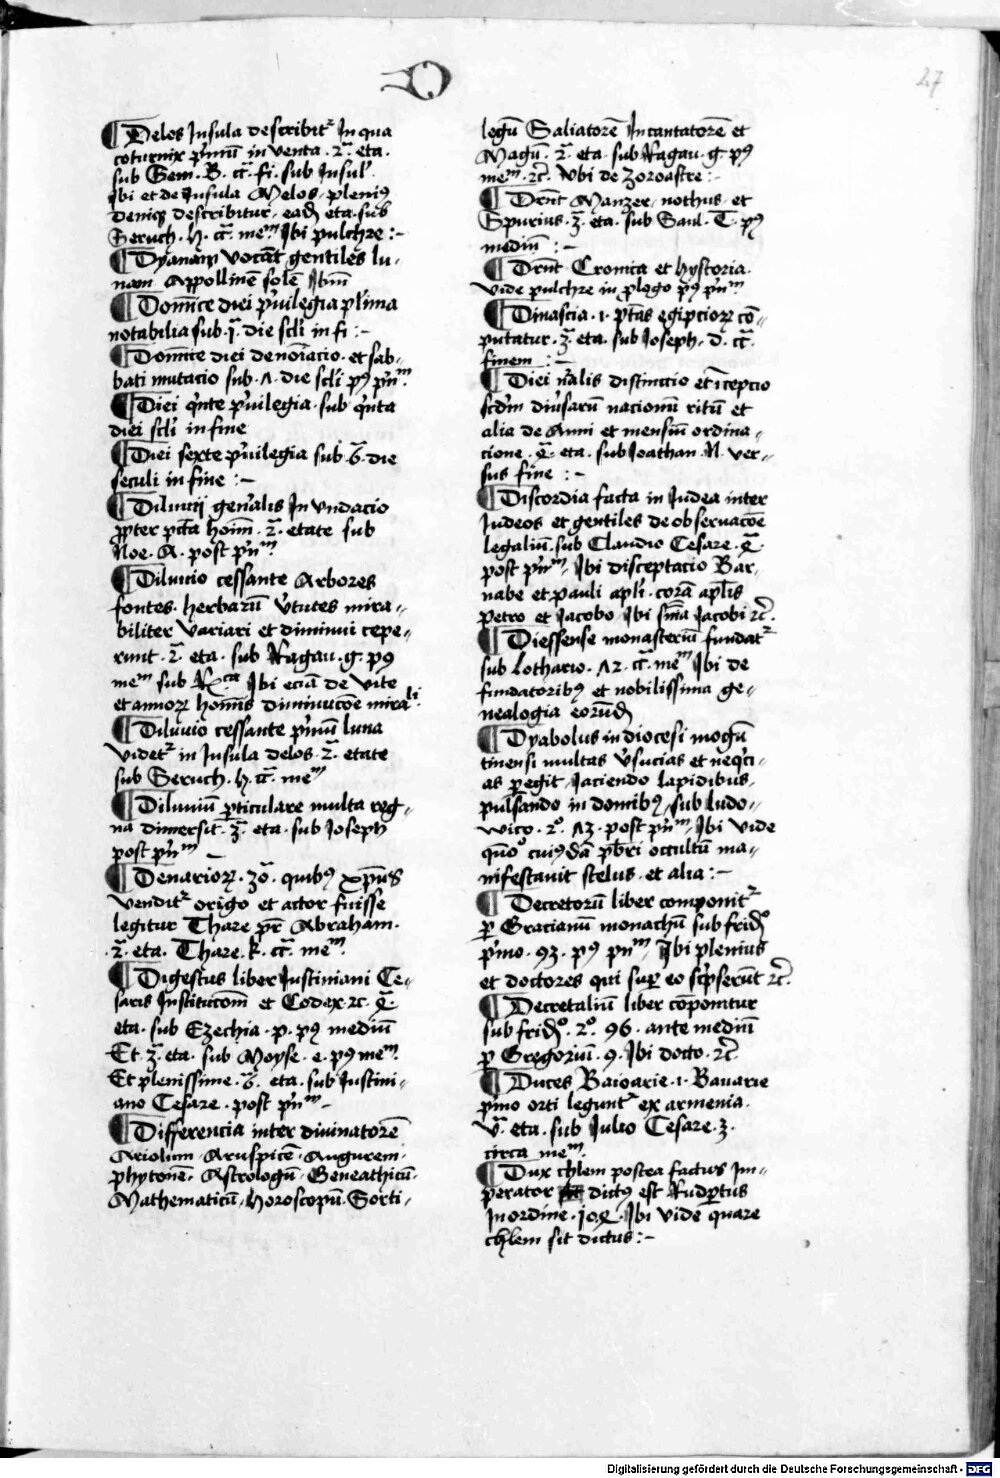 D
47
¶ Delos Insula describit᷑ In qua
coturnix p'mū in venta · 2ᵃ · eta ·
sub Sem · B · cᷓ · fi · sub Insul'
Ibi et de Insula Melos · pleniꝰ
deniqꝫ describitur · eadē eta · sub
Seruch · H · cᷓ · meᵐ Ibi pulchre :-
¶ Dyanam vocāt gentiles lu-
nam Appollinē solē Ibm̄
¶ Domīce diei p'uilegia pl'ima
notabilia sub · 1ᵃ · die scl'i in fi :-
¶ Domīce diei denoīacio · et sab-
bati mutacio sub · 1 · die scl'i pꝰ p'nᵐ
¶ Diei q'nte p'uilegia · sub q'nta
diei scl'i in fine
¶ Diei sexte p'uilegia sub · 6ᵃ · die
seculi in fine :-
¶ Diluuij gen'alis In vndacio
ꝓpter pctā hoīm · 2ᵃ · etate sub
Noe · A · post p'nᵐ
¶ Diluuio cessante Arbores
fontes · herbarū v'tutes mira-
biliter variari et diminui cepe-
runt · 2ᵃ · eta · sub Ragau · g · pꝰ
meᵐ sub Ibi eciā de vite
et annoꝝ homīs diminucōe mirali ·
¶ Diluuio cessante p'mū luna
videt᷑ in Insula delos · 2ᵃ · etate
sub Seruch · h · cᷓ · meᵐ
¶ Diluuiū ꝑticulare multa reg-
na dimersit · 3ᵃ · eta · sub Ioseph
post p'nᵐ -
¶ Denarioꝝ · 30 · quibꝰ xp̄us
vendit᷑ origo et actor fuisse
legitur Thare p̄r Abraham ·
· 2ᵃ · eta · Thare · k · cᷓ · meᵐ
¶ Digestus liber Iustiniani Ce-
saris Institucom̄ et Codex · ⁊c · 4ᵃ ·
eta · sub Ezechia · p · pꝰ mediū
Et · 3ᵃ · eta · sub Moyse · e · pꝰ meᵐ
Et plenissime · 6ᵃ · eta · sub Iustini-
ano Cesare · post p'nᵐ -
¶ Differencia inter diuinatorē
Ariolum · Aruspicē · Augurem ·
phytonē · Astrologū · Geneathicū ·
Mathematicū · Horoscopū · Sorti-
legū Saliatorē Incantatorē et
Magū · 2ᵃ · eta · sub Ragau · g · pꝰ
meᵐ · ⁊c̄ · Vbi de Zoroastre :-
¶ Dr̄nt Manzer · nothus · et
Spurius · 3ᵃ · eta · sub Saul · T · pꝰ
mediū :-
¶ Dr̄nt Cronica et hystoria ·
vide pulchre in plogo pꝰ p'nᵐ
¶ Dinascia · i · ptās egipcioꝝ cō-
putatur · 3ᵃ · eta · sub Ioseph · d · cᷓ ·
finem :-
¶ Diei n'alis distinctio et īcepcio
scd'm diu'sarū nacionū ritū et
alia de Anni et mensiū ordina-
cione · 4ᵃ · eta · sub Ioathan · N · ver-
sus fine :-
¶ Discordia facta in Iudea inter
Iudeos et gentiles de obseruacōe
legaliū · sub Claudio Cesare · 4ᵃ ·
post p'nᵐ · Ibi disceptacio Bar-
nabe et pauli apl'i · corā aplīs
petro et Iacobo Ibi sn̄ia Iacobi ⁊c̄ ·
¶ Diessense monasteriū fundat᷑
sub Lothario · 12 · cᷓ · meᵐ Ibi de
fundatoribꝰ et nobilissima ge-
nealogia eorūdē
¶ Dyabolus in diocesi mogū
tinensi multas v'sucias et neq'ci-
as ꝑegit · Iaciendo lapidibus ·
pulsando in domibꝰ · sub Ludo-
wico · 2ᵒ · 13 · post p'nᵐ · Ibi vide
quōᵒ cuiꝰdā pb'ri occultū ma-
nifestauit scelus · et alia :-
¶ Decretorū liber componit᷑
ꝑ Gracianū monachū sub fridᵒ
p'mo · 93 · pꝰ pnᵐ · Ibi plenius
et doctores qui suꝑ eo sc'pserūt ⁊c̄ ·
¶ Decretaliū liber cōponitur
sub fridᵒ · 2ᵒ · 96 · ante mediū
ꝑ Gregoriū · 9 · Ibi docto · ⁊c̄ ·
¶ Duces Baioarie · i · Bauarie
p'mo orti legunt᷑ ex armenia ·
vᵃ · eta · sub Iulio Cesare · 3 ·
circa meᵐ ·
¶ Dux chlem postea factus Im-
perator dictꝰ est Rudꝑtus
In ordine · 104 · Ibi vide quare
chlem sit dictus :-
Digitalisierung gefördert durch die Deutsche Forschungsgemeinschaft - DFG